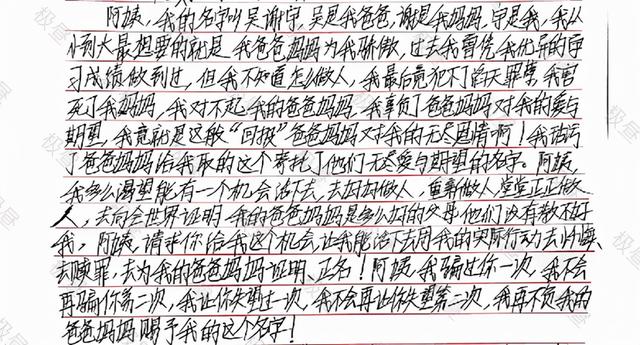 阿姨，我的名字叫吴谢宇，吴是我爸爸，谢是我妈妈，宇是我，我从
小到大最想要的就是我爸爸妈妈为我骄傲，过去我曾凭我优异的学
习成绩做到过，但我不知道怎么做人，我最后竟犯下了滔天罪孽，我害
死了我妈妈，我对不起我的爸爸妈妈，我辜负了爸爸妈妈对我的爱与
期望，我竟就是这般“回报”爸爸妈妈对我的无尽恩情啊！我玷污
了爸爸妈妈给我取的这个寄托了他们无尽爱与期望的名字。阿姨，
我多么渴望能有一个机会活下去，去好好做人，重新做人堂堂正正做
人，去向全世界证明，我的爸爸妈妈是多么好的父母，他们没有教不好
我，阿姨，请求你给我这个机会，让我能活下去用我的实际行动去忏悔、
去赎罪，去为我的爸爸妈妈证明、正名！阿姨，我骗过你一次，我不会
再骗你第二次，我让你失望过一次，我不会再让你失望第二次，我再不负我的
爸爸妈妈赐予我的这个名字！
极昼